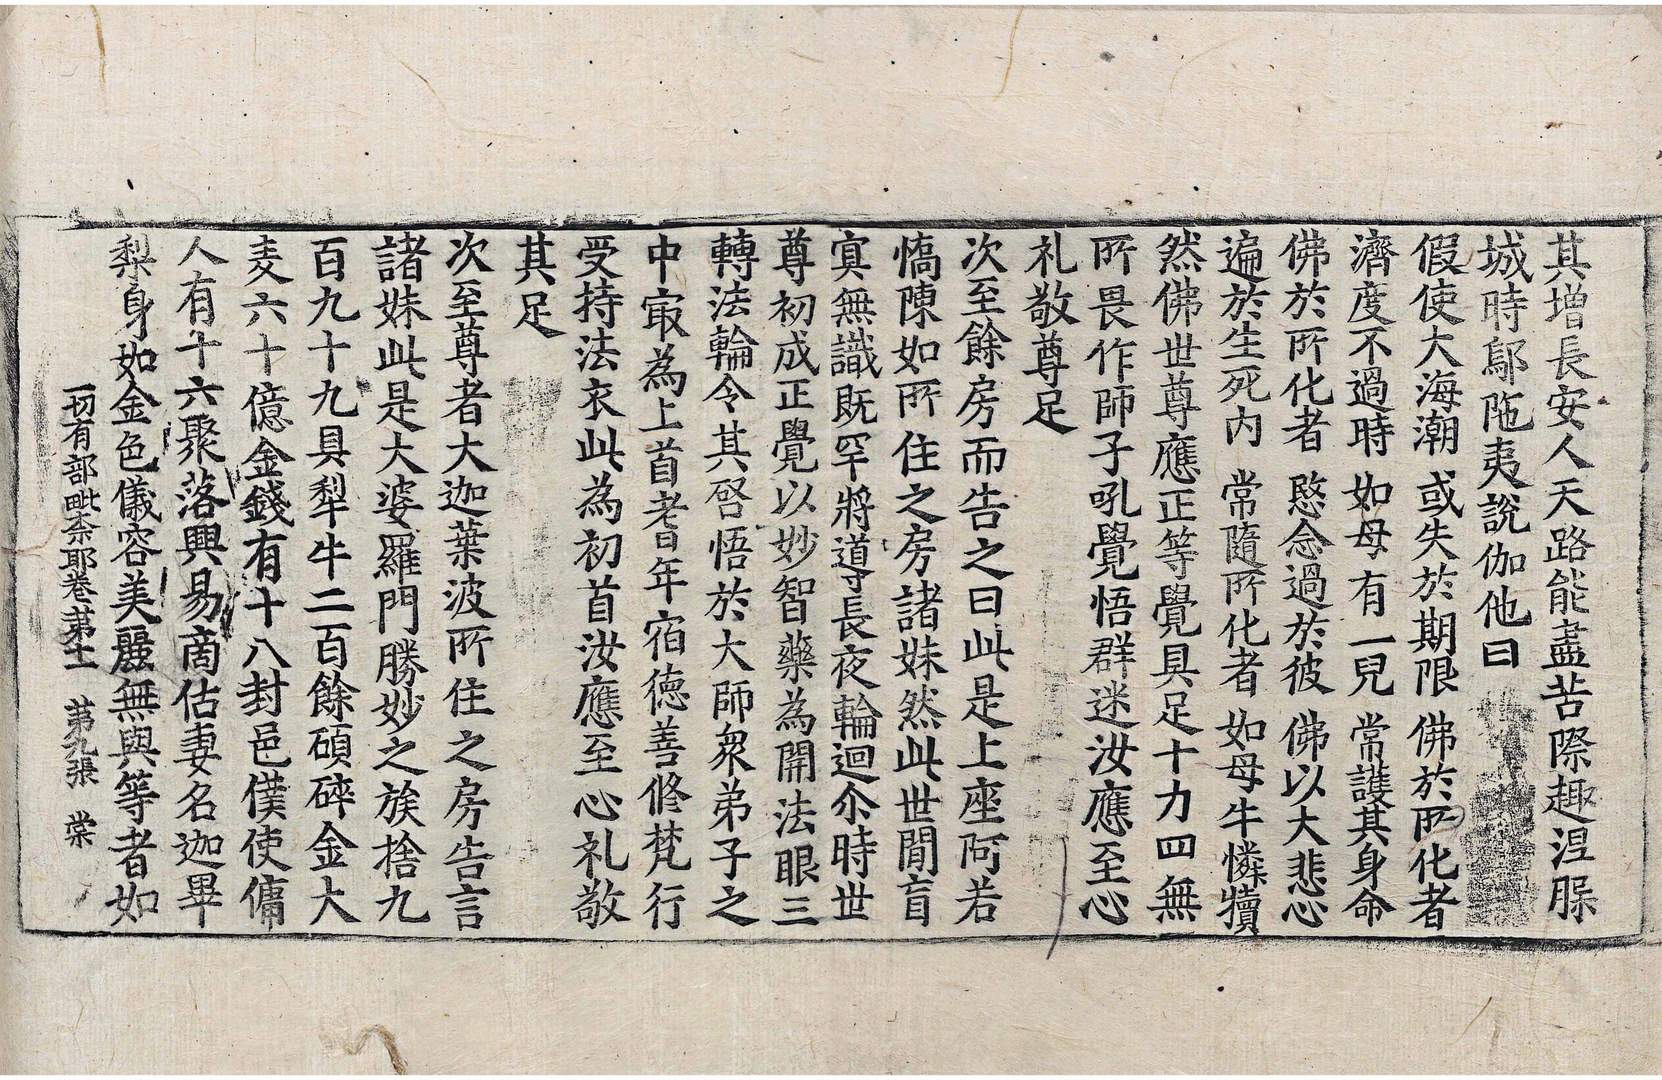 其增長安人天路能盡苦際趣涅槃
城時鄔陁夷說伽他曰
假使大海潮　或失於期限　佛於所化者
濟度不過時　如母有一兒　常護其身命
佛於所化者　愍念過於彼　佛以大悲心
遍於生死內　常隨所化者　如母牛憐犢
然佛世尊應正等覺具足十力四無
所畏作師子吼覺悟群迷汝應至心
礼敬尊足
次至餘房而告之曰此是上座阿若
憍陳如所住之房諸妹然此世間盲
寘無識既罕將導長夜輪迴尒時世
尊初成正覺以妙智藥為開法眼三
轉法輪令其啓悟於大師衆弟子之
中㝡為上首耆年宿德善修梵行
受持法衣此為初首汝應至心礼敬
其足
次至尊者大迦葉波所住之房告言
諸妹此是大婆羅門勝妙之族捨九
百九十九具犁牛二百餘碩碎金大
麦六十億金錢有十八封邑僕使傭
人有十六聚落興易商估妻名迦畢
梨身如金色儀容美麗無與等者如
一切有部毗柰耶卷苐十一　苐九張　棠